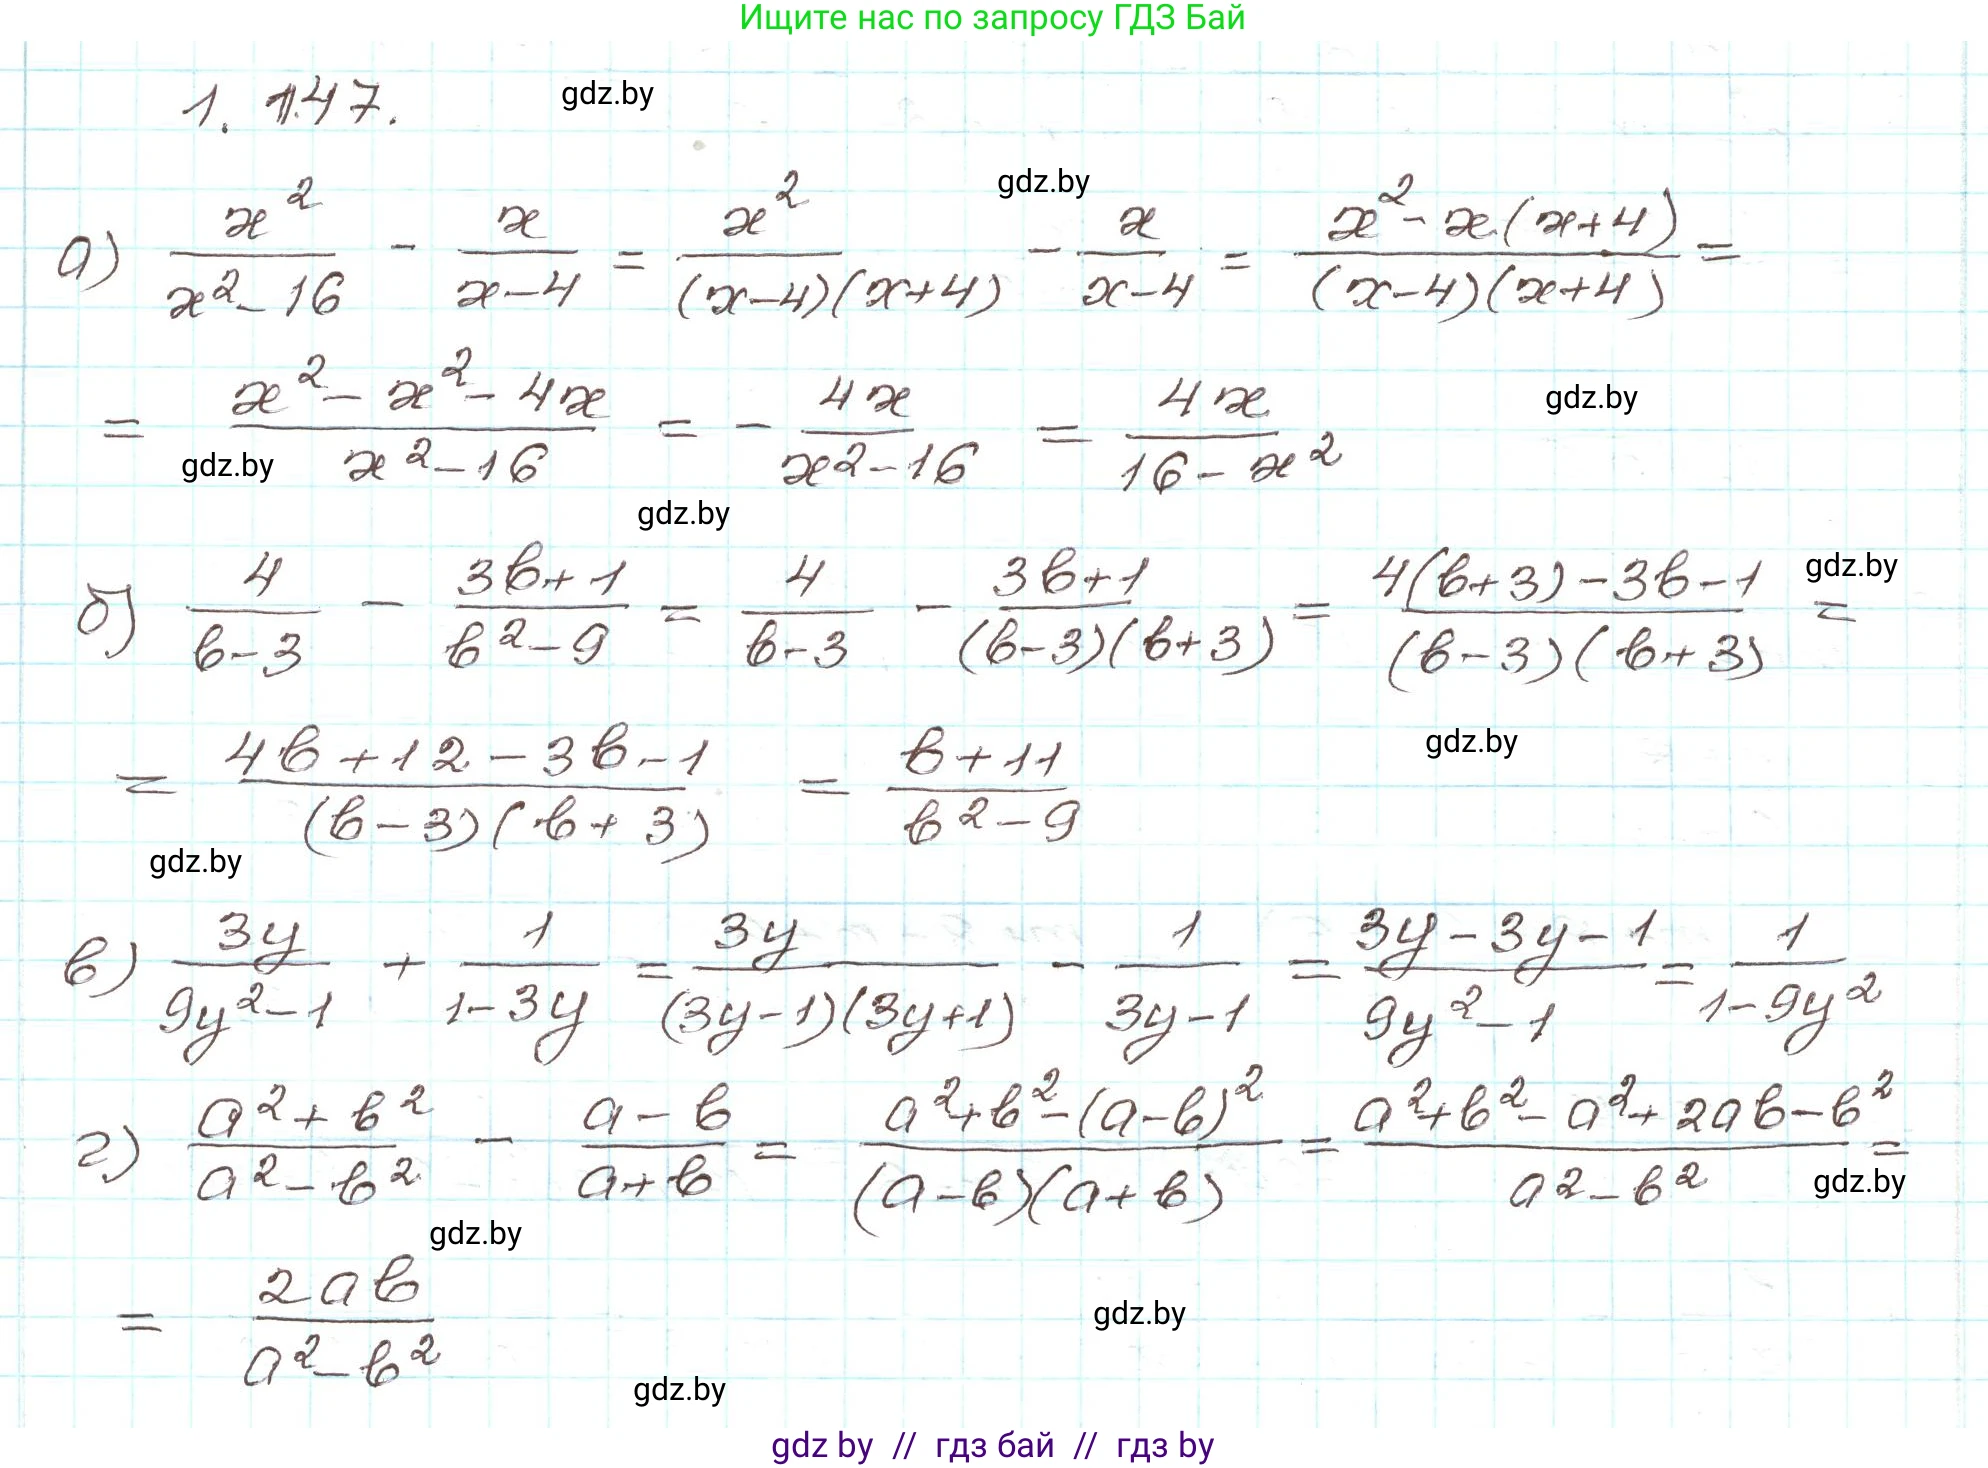 Ищите нас по запросу ГДЗ Бай
1.147. gdz.by
gdz.by
а) x²/(x²-16) - x/(x-4) = x²/((x-4)(x+4)) - x/(x-4) = (x²-x(x+4))/((x-4)(x+4)) =
= (x²-x²-4x)/(x²-16) = -4x/(x²-16) = 4x/(16-x²) gdz.by
gdz.by
gdz.by
б) 4/(b-3) - (3b+1)/(b²-9) = 4/(b-3) - (3b+1)/((b-3)(b+3)) = (4(b+3)-3b-1)/((b-3)(b+3)) = gdz.by
= (4b+12-3b-1)/((b-3)(b+3)) = (b+11)/(b²-9) gdz.by
gdz.by
в) 3y/(9y²-1) + 1/(1-3y) = 3y/((3y-1)(3y+1)) - 1/(3y-1) = (3y-3y-1)/(9y²-1) = 1/(1-9y²)
г) (a²+b²)/(a²-b²) - (a-b)/(a+b) = (a²+b²-(a-b)²)/((a-b)(a+b)) = (a²+b²-a²+2ab-b²)/(a²-b²) =
gdz.by
gdz.by
= 2ab/(a²-b²) gdz.by
gdz.by
gdz by // гдз бай // гдз by